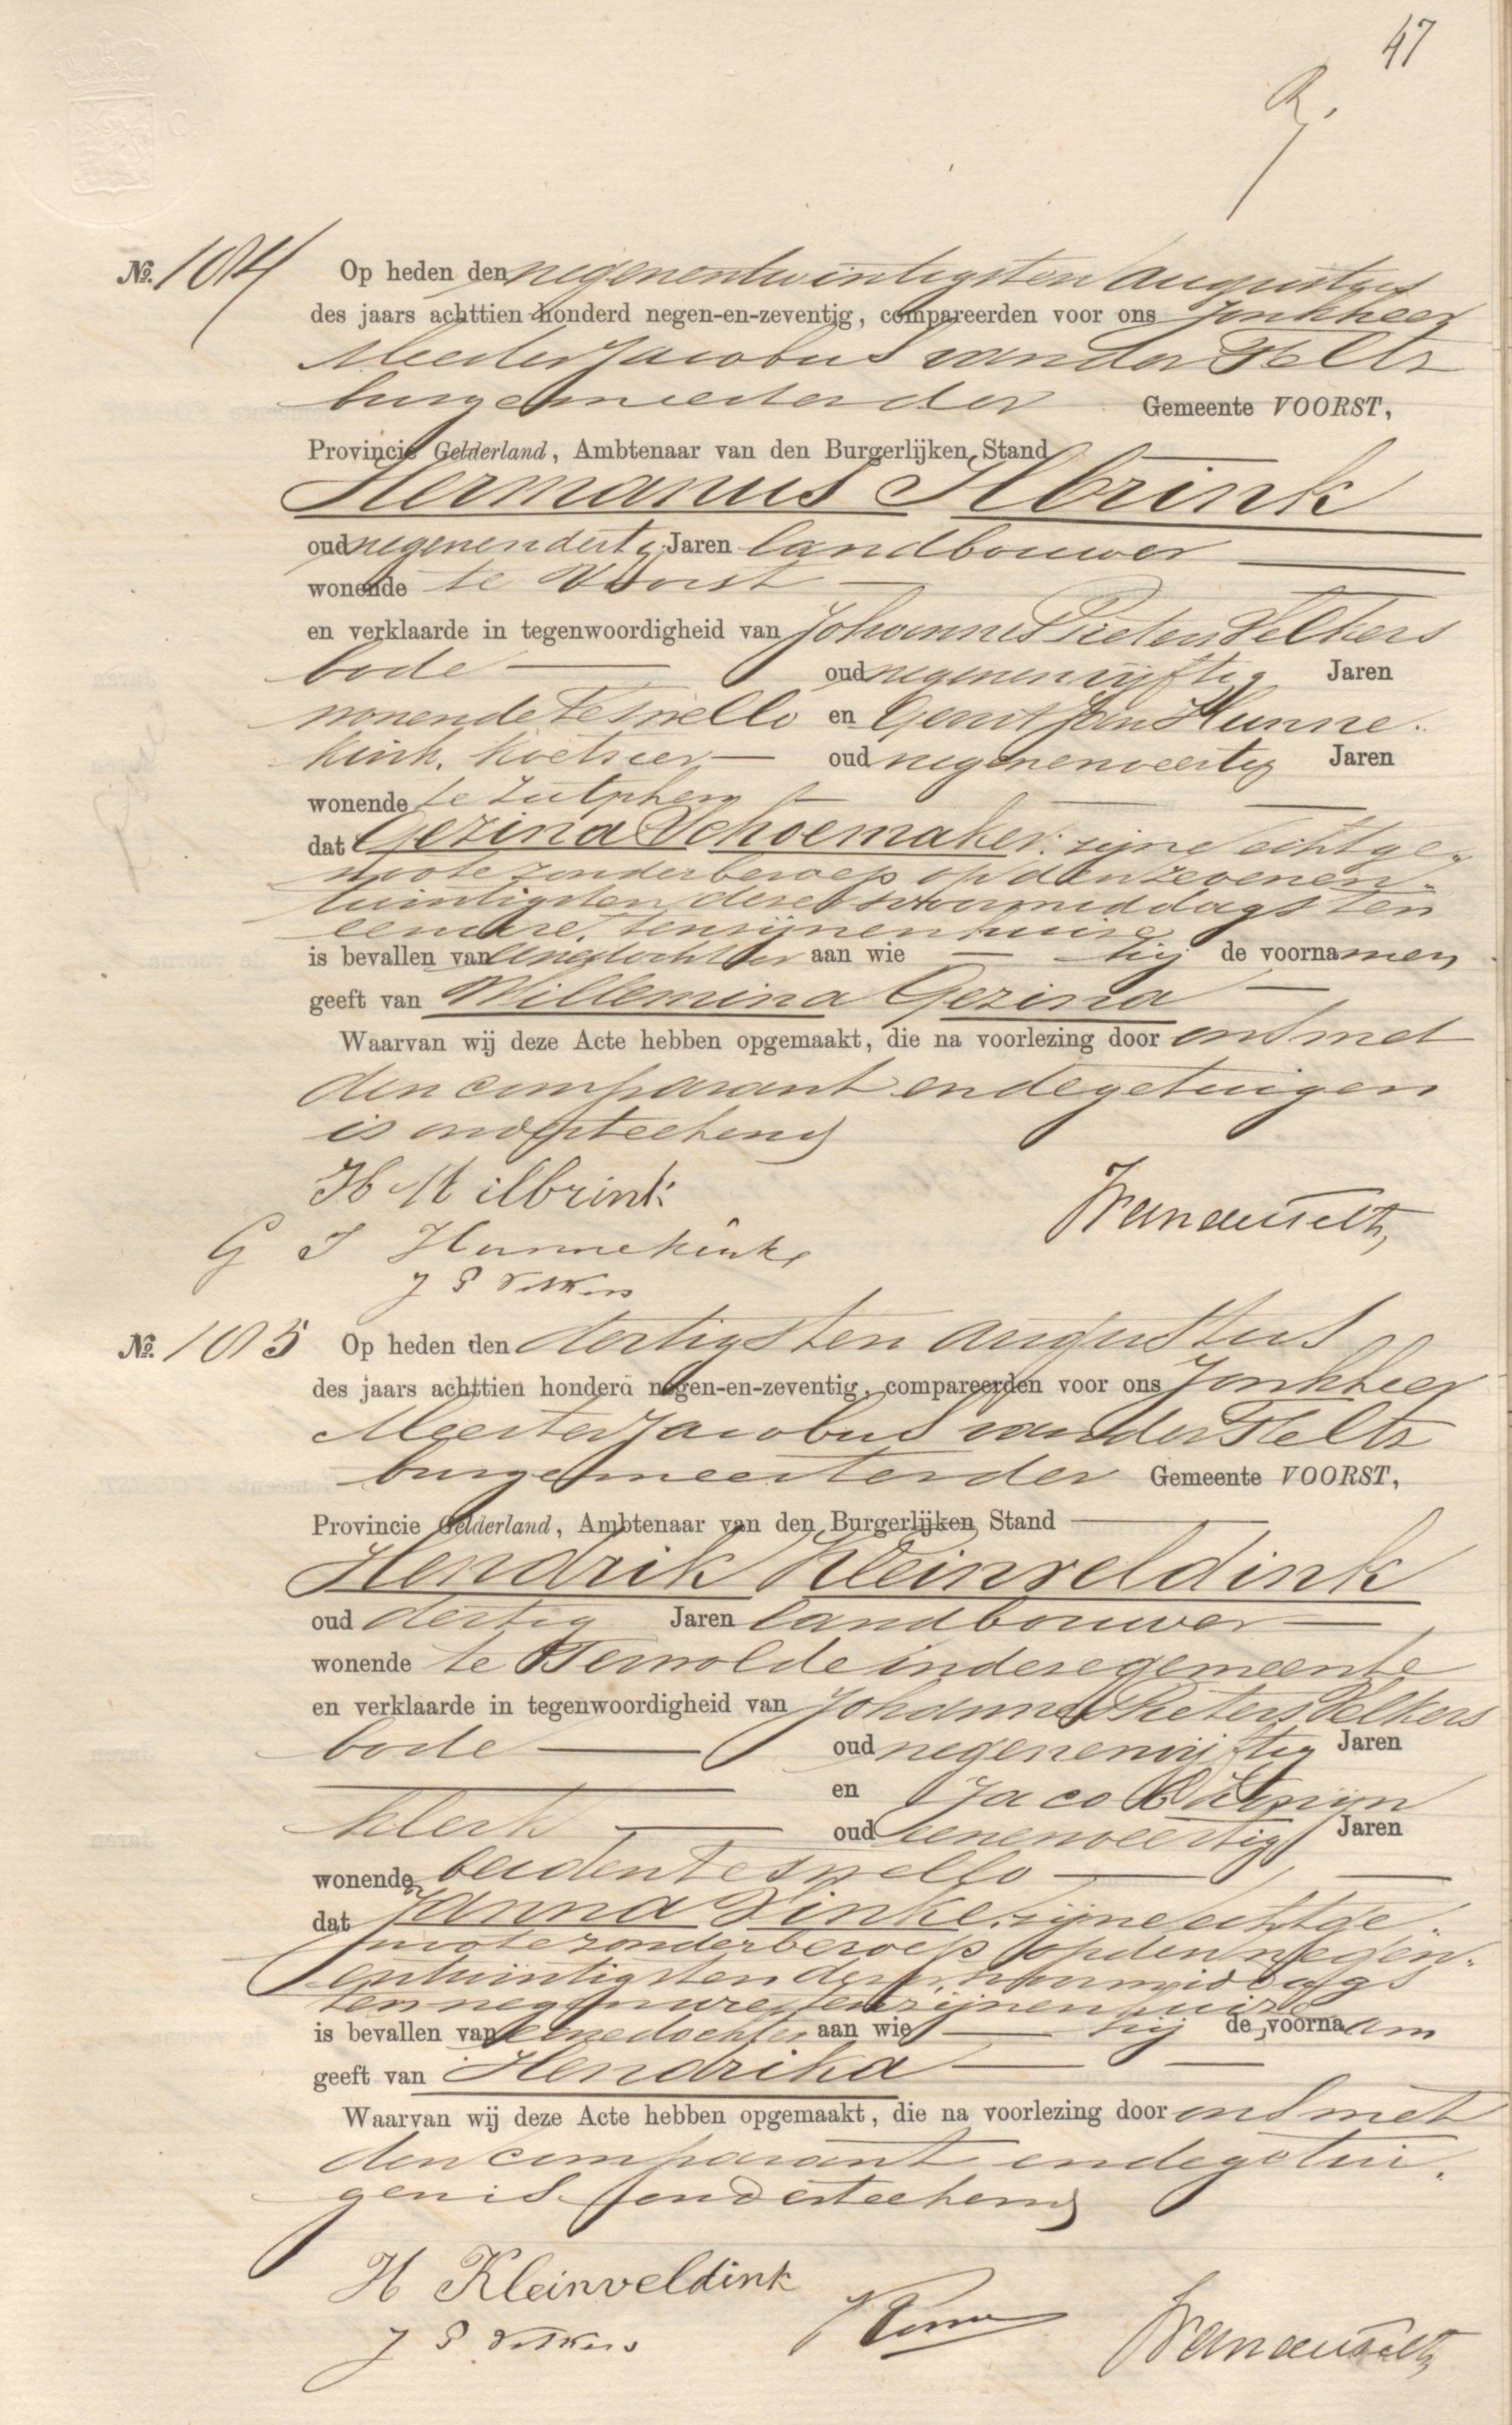 47
R.
No. 184 Op heden den negenentwintigsten augustus
des jaars achttien honderd negen-en-zeventig, compareerden voor ons Jonkheer
Meester Jacobus van der Feltz
burgemeester der Gemeente VOORST,
Provincie Gelderland, Ambtenaar van den Burgerlijken Stand
Hermanus Ilbrink
oud negenendertig Jaren landbouwer
wonende te Voorst
en verklaarde in tegenwoordigheid van Johannes Pieter Velkers
bode oud negenenvijftig Jaren
wonende te Twello en Gerrit Jan Hunne-
kink, koetsier oud negenenveertig Jaren
wonende te Zutphen
dat Gezina Schoemaker, zijne echtge-
noote zonder beroep op den zevenen-
twintigsten dezer voormiddags ten
een ure, ten zijnen huize
is bevallen van eene dochter aan wie hij de voornamen
geeft van Willemina Gezina
Waarvan wij deze Acte hebben opgemaakt, die na voorlezing door ons met
den comparant en de getuigen
is onderteekend
H M ilbrink
G J Hunnekink
J P Velkers
No. 185 Op heden den dertigsten augustus
des jaars achttien honderd negen-en-zeventig, compareerden voor ons Jonkheer
Meester Jacobus van der Feltz
burgemeester der Gemeente VOORST,
Provincie Gelderland, Ambtenaar van den Burgerlijken Stand
Hendrik Kleinveldink
oud dertig Jaren landbouwer
wonende te Terwolde in deze gemeente
en verklaarde in tegenwoordigheid van Johannes Pieter Velkers
bode oud negenenvijftig Jaren
en Jacob
klerk oud eenenveertig Jaren
wonende beiden te Twello
dat Janna Vinke, zijne echtge-
noote zonder beroep op den negen-
entwintigsten dezer, voormiddags
ten negen ure, ten zijnen huize
is bevallen van eene dochter aan wie hij de voornaam
geeft van Hendrika
Waarvan wij deze Acte hebben opgemaakt, die na voorlezing door ons met
den comparant en de getui-
gen is onderteekend
H Kleinveldink
J P Velkers